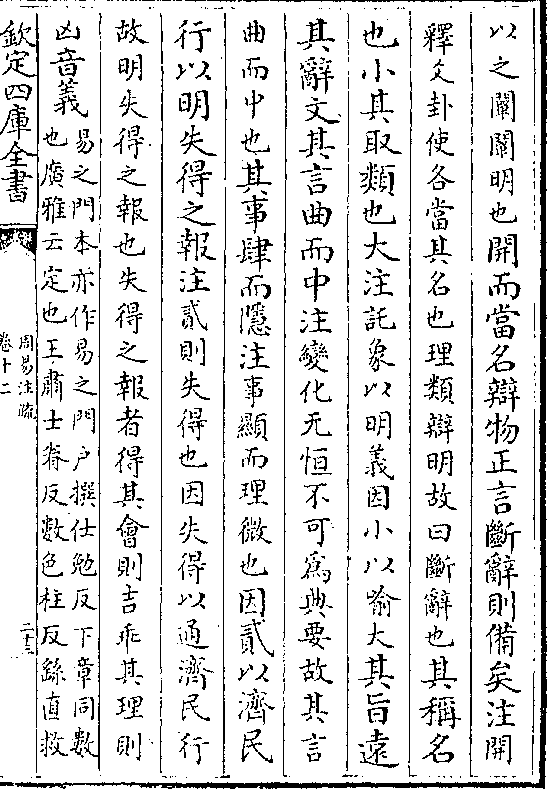 以之闡闡明也開而當名辯物正言斷辭則備矣注開
釋爻卦使各當其名也理類辯明故曰斷辭也其稱名
也小其取類也大注託象以明義因小以喻大其旨遠
其辭文其言曲而中注變化无恒不可為典要故其言
曲而中也其事肆而隱注事顯而理微也因貳以濟民
行以明失得之報注貳則失得也因失得以通濟民行
故明失得之報也失得之報者得其會則吉乖其理則
凶音義
易之門本亦作易之門户撰仕勉反下章同數
也廣雅云定也王肅士眷反數色柱反錄直救
欽定四庫全書
周易注疏
卷十二
二十三